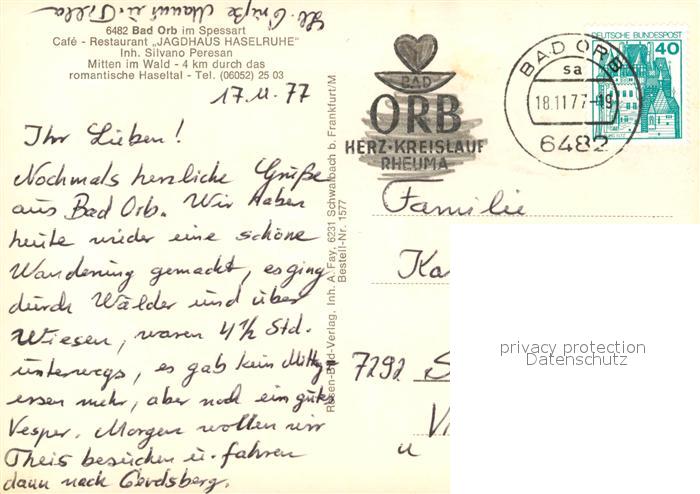 Lb. Grüße
6482 Bad Orb im Spessart
Café - Restaurant „JAGDHAUS HASELRUHE"
Inh. Silvano Peresan
Mitten im Wald - 4 km durch das
romantische Haseltal - Tel. (06052) 25 03
17.11.77
Ihr Lieben!
Nochmals herzliche Grüße
aus Bad Orb. Wir haben
heute wieder eine schöne
Wanderung gemacht, es ging
durch Wälder und über
Wiesen, waren 4½ Std.
unterwegs, es gab kein Mittag-
essen mehr, aber noch ein gutes
Vesper. Morgen wollen wir
Theis besuchen u. fahren
dann nach
Rosen-Bild-Verlag. Inh. A. Fay, 6231 Schwalbach b. Frankfurt/M
Bestell-Nr. 1577
BAD
ORB
HERZ·KREISLAUF
RHEUMA
BAD ORB
sa
18.11.77-19
6482
DEUTSCHE BUNDESPOST
40
Familie
Ka
7292 S
u
privacy protection
Datenschutz